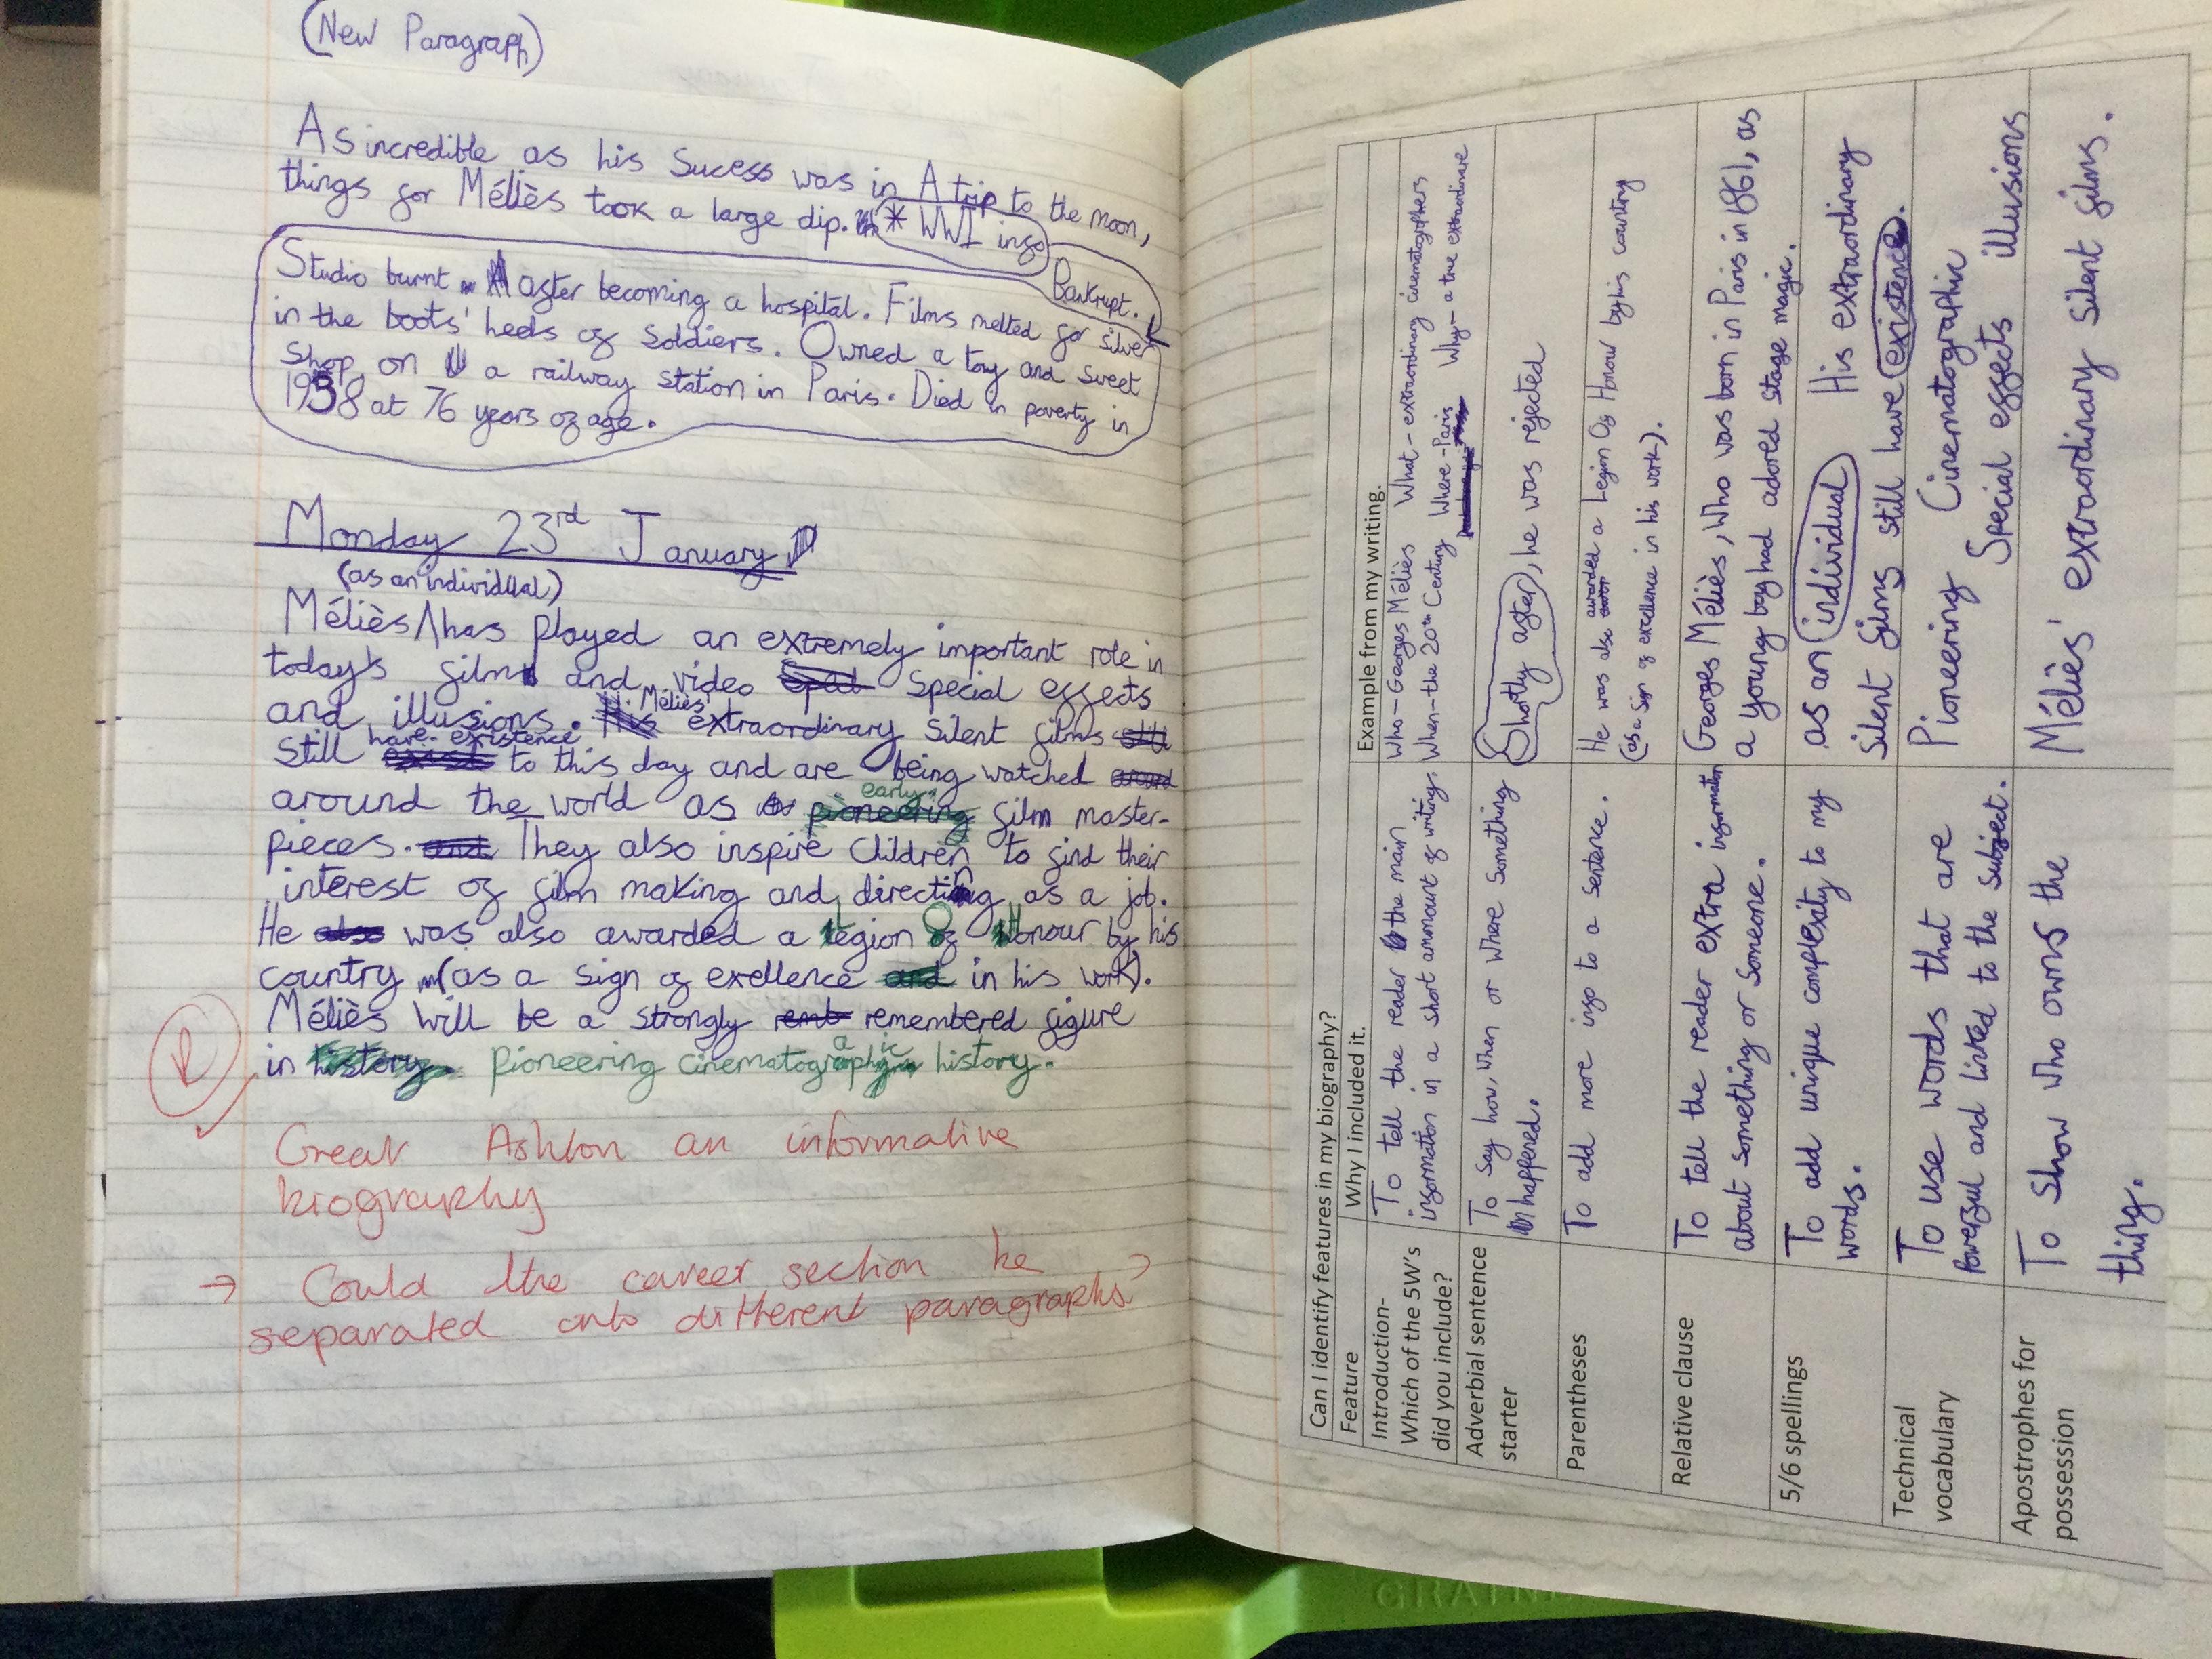 (New Paragraph)
As incredible as his Sucess was in A trip to the moon,
things for Méliès took a large dip. * WWI info
Bankrupt.
Studio burnt after becoming a hospital. Films melted for silver
in the boots' heels of Soldiers. Owned a toy and sweet
shop on a railway station in Paris. Died in poverty in
1938 at 76 years of age.
Monday 23rd January
(as an individual)
Méliès has played an extremely important role in
today's film and video special effects
and illusions. Méliès' extraordinary silent films
still have existence to this day and are being watched
around the world as early film master-
pieces. They also inspire children to find their
interest of film making and directing as a job.
He was also awarded a Legion Of Honour by his
country (as a sign of exellence in his work).
Méliès will be a strongly remembered figure
in pioneering cinematographic history.
Great Ashton an informative
biography
→ Could the career section be
separated onto different paragraphs?
Can I identify features in my biography?
Feature
Why I included it.
Example from my writing.
Introduction-
Which of the 5W's
did you include?
To tell the reader the main
information in a short ammount of writing.
Who - Georges Méliès What - extraordinary cinematographers
When - the 20th Century Where - Paris Why - a true extraordinare
Adverbial sentence
starter
To say how, when or where something
happened.
Shortly after, he was rejected
Parentheses
To add more info to a sentence.
He was also awarded a Legion Of Honour by his country
(as a sign of excellence in his work).
Relative clause
To tell the reader extra information
about something or someone.
Georges Méliès, who was born in Paris in 1861, as
a young boy had adored stage magic.
5/6 spellings
To add unique complexity to my
words.
as an individual His extraordinary
silent films still have existence.
Technical
vocabulary
To use words that are
powerful and linked to the subject.
Pioneering Cinematographic
Special effects illusions
Apostrophes for
possession
To show who owns the
thing.
Méliès' extraordinary silent films.